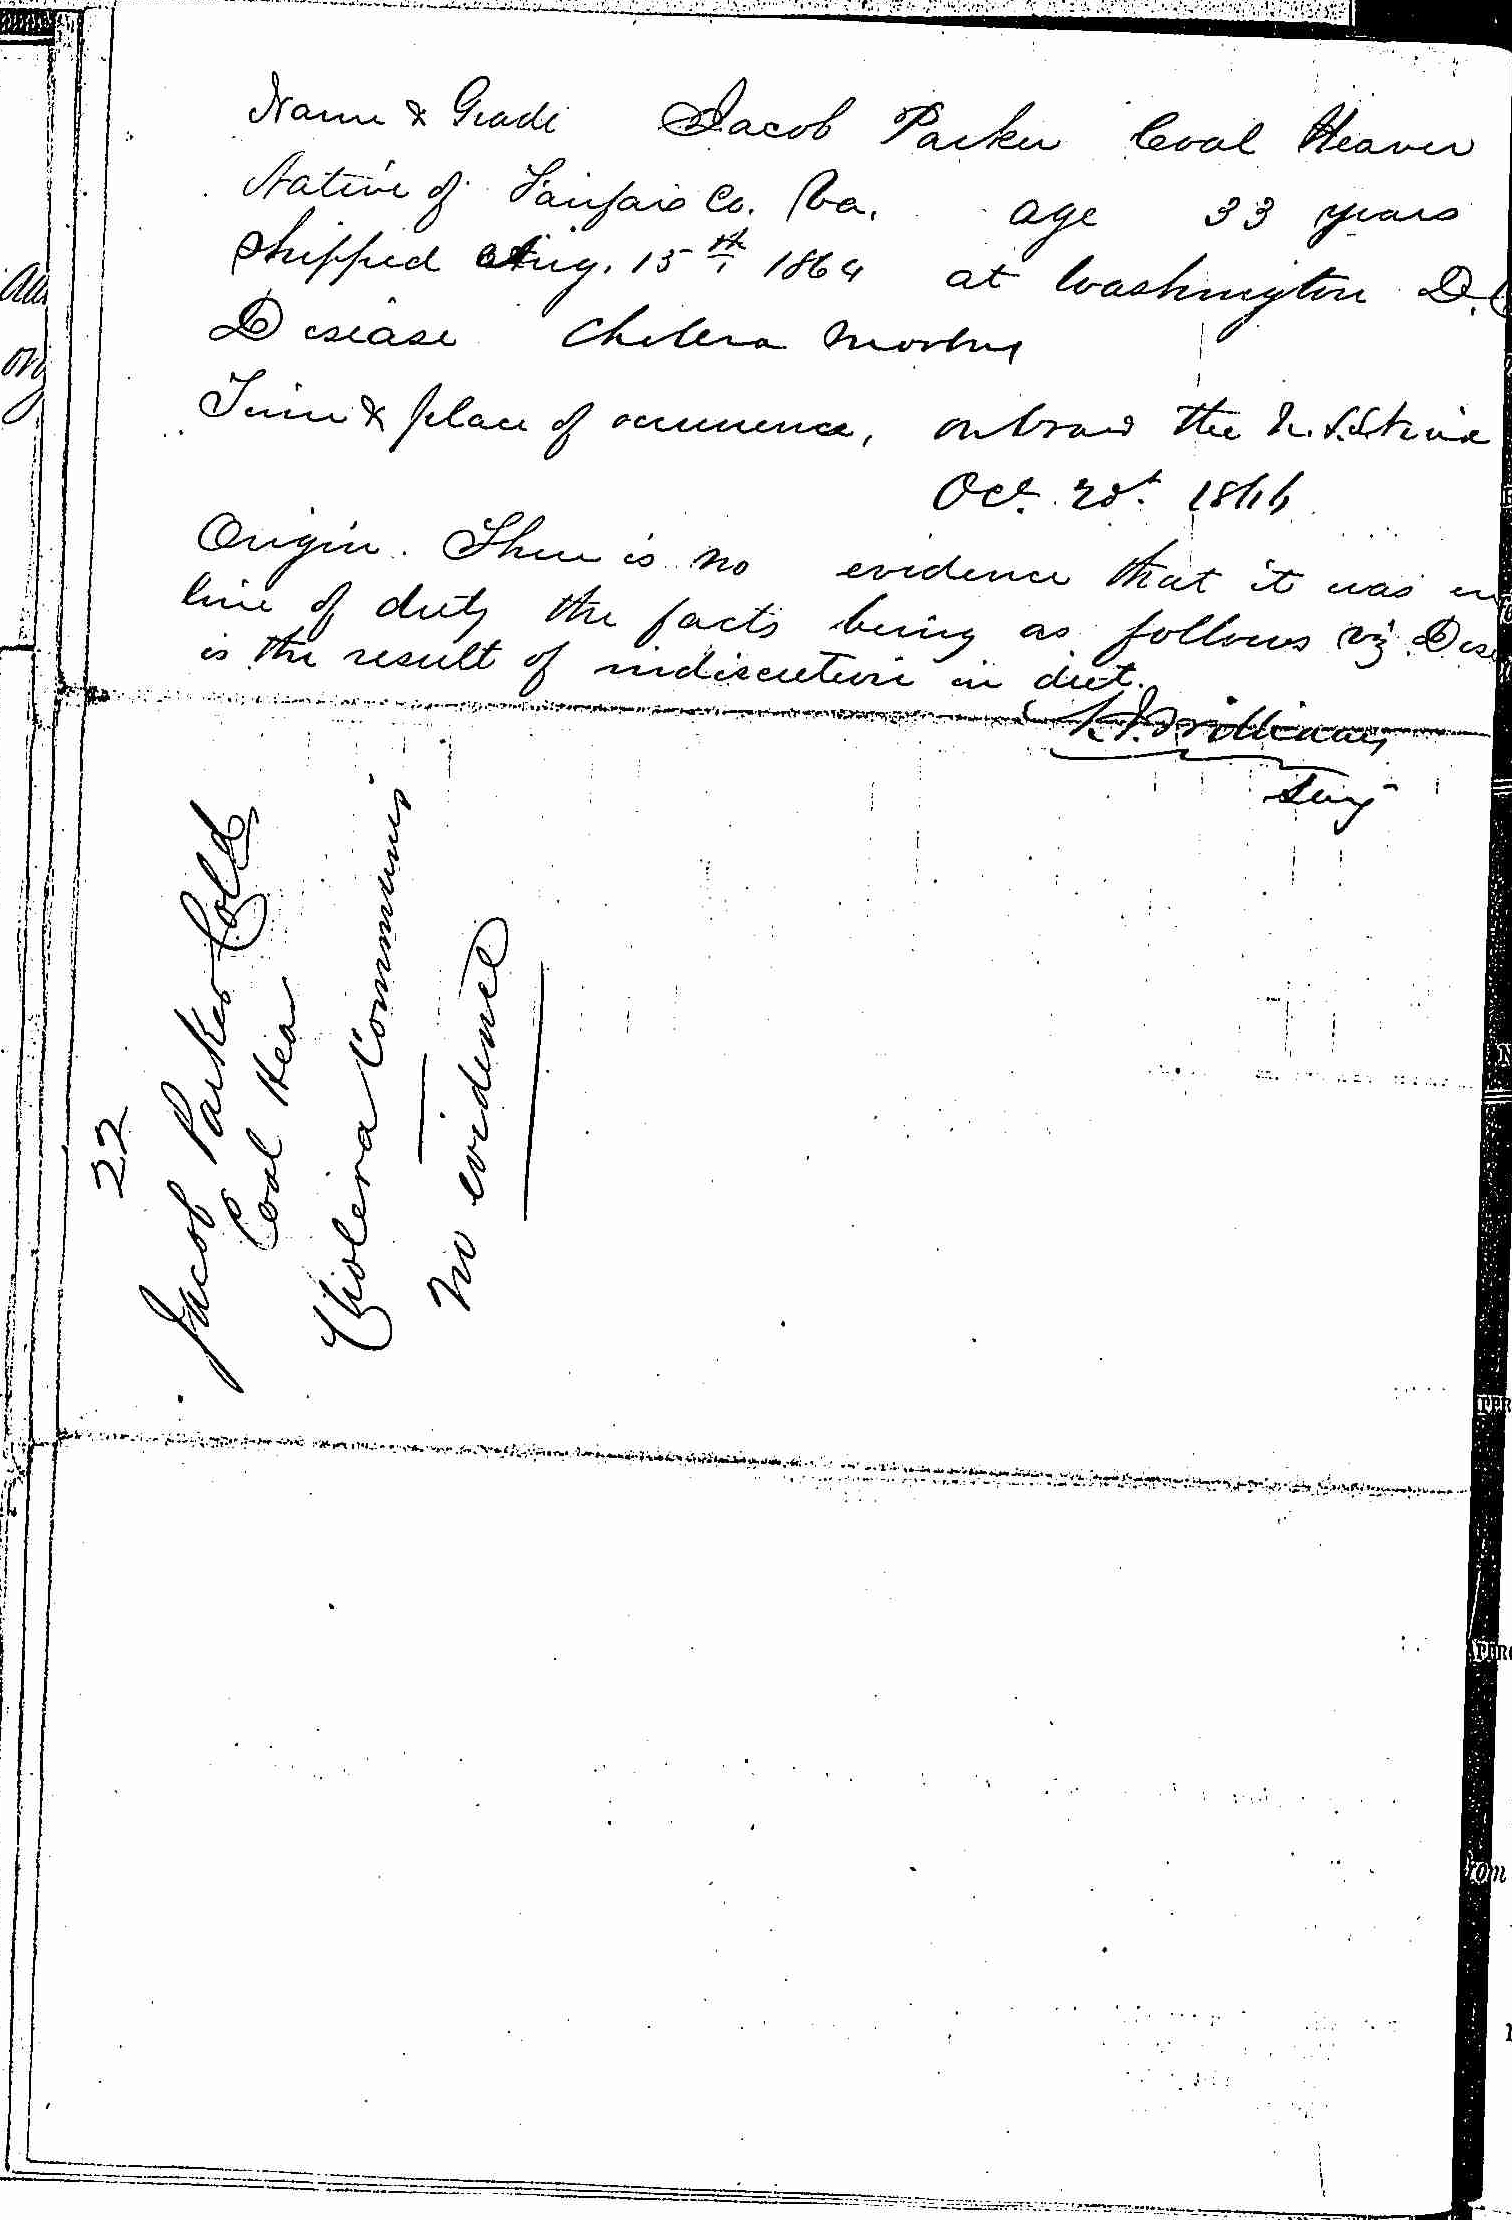 Name & Grade Jacob Parker Coal Heaver
Native of Fairfax Co. Va. age 33 years
Shipped Aug. 15th 1864 at Washington D.C
Disease Cholera Morbus
Time & place of occurrence, onboard the U.S.S.
Oct. 1866
Origin. There is no evidence that it was in
line of duty the facts being as follows viz Dise
is the result of indiscretion in diet.
Surg
22
Jacob Parker Cold
Coal Hea
Cholera Communis
No evidence